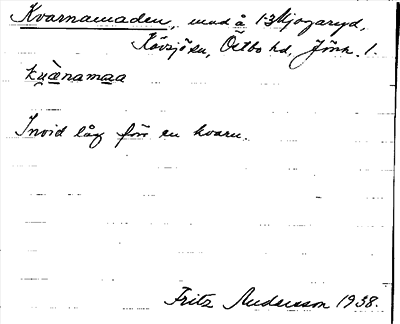 Kvarnamaden, mad å 1-3 Mjogaryd,
Kävsjö sn, Östbo hd, Jönk. l.
Invid låg förr en kvarn.
Fritz Andersson 1938.